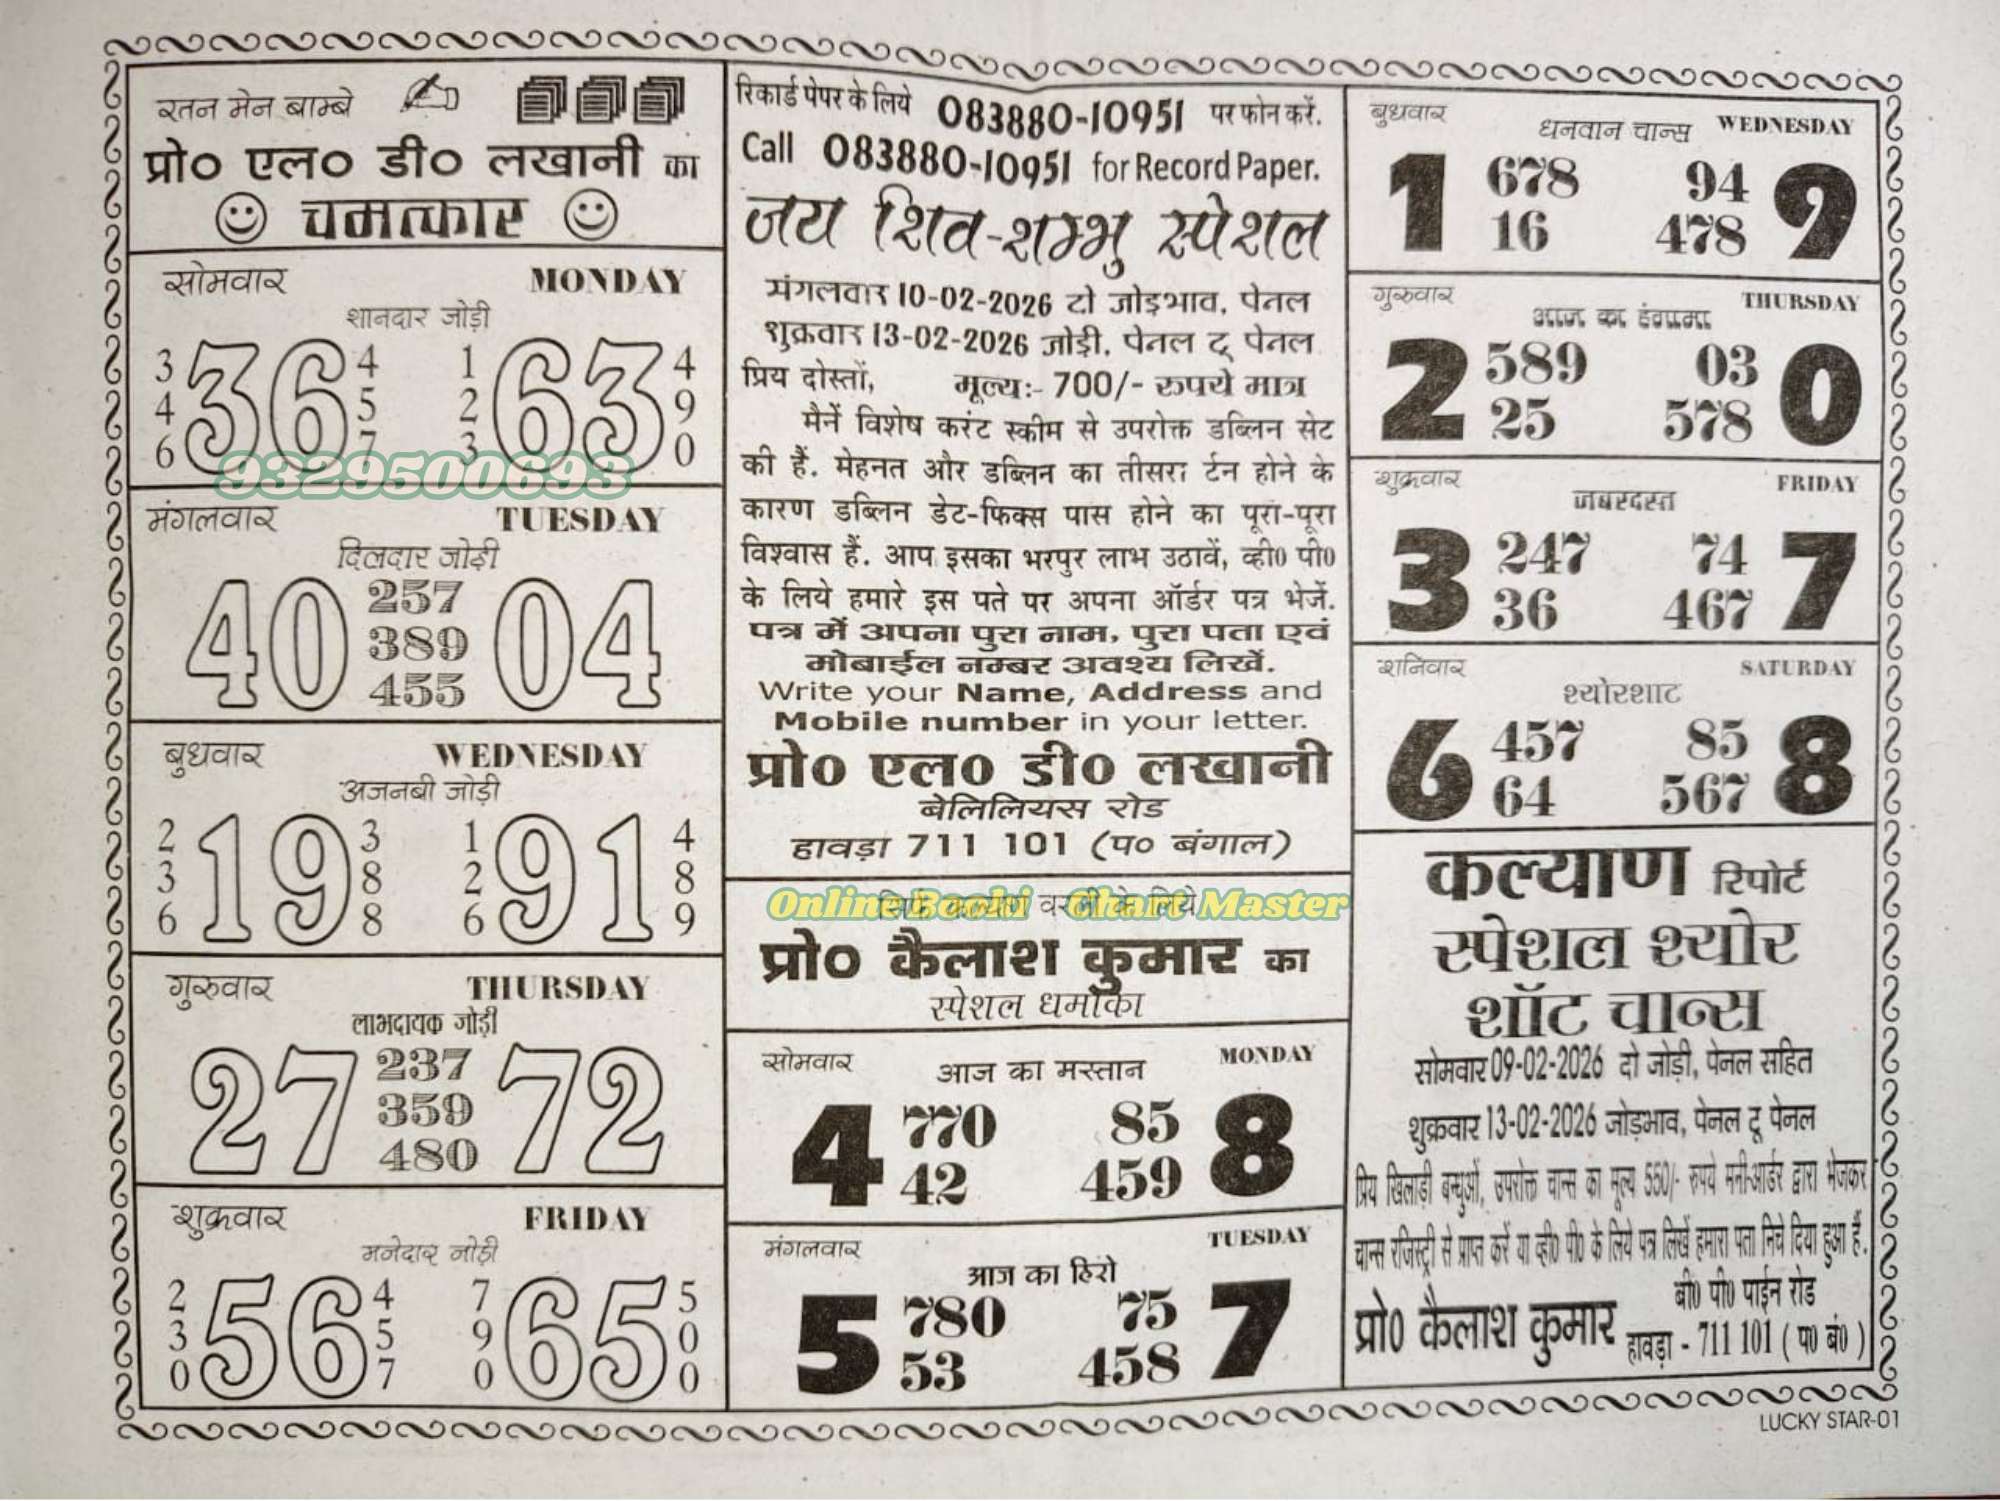 रतन मेन बाम्बे
प्रो० एल० डी० लखानी का
चमत्कार
सोमवार MONDAY
शानदार जोड़ी
3 4 6 36 4 5 7 1 2 3 63 4 9 0
9329500693
मंगलवार TUESDAY
दिलदार जोड़ी
40 257 04
389
455
बुधवार WEDNESDAY
अजनबी जोड़ी
2 3 6 19 3 8 8 1 2 6 91 4 8 9
गुरुवार THURSDAY
लाभदायक जोड़ी
27 237 72
359
480
शुक्रवार FRIDAY
मनेदार जोड़ी
2 3 0 56 4 5 7 7 9 0 65 5 0 0
रिकार्ड पेपर के लिये 083880-10951 पर फोन करें.
Call 083880-10951 for Record Paper.
जय शिव-शम्भु स्पेशल
मंगलवार 10-02-2026 टो जोड़भाव, पेनल
शुक्रवार 13-02-2026 जोड़ी, पेनल टू पेनल
प्रिय दोस्तों, मूल्य:- 700/- रुपये मात्र
मैनें विशेष करंट स्कीम से उपरोक्त डब्लिन सेट
की हैं. मेहनत और डब्लिन का तीसरा र्टन होने के
कारण डब्लिन डेट-फिक्स पास होने का पूरा-पूरा
विश्वास हैं. आप इसका भरपुर लाभ उठावें, व्ही० पी०
के लिये हमारे इस पते पर अपना ऑर्डर पत्र भेजें.
पत्र में अपना पुरा नाम, पुरा पता एवं
मोबाईल नम्बर अवश्य लिखें.
Write your Name, Address and
Mobile number in your letter.
प्रो० एल० डी० लखानी
बेलिलियस रोड
हावड़ा 711 101 (प० बंगाल)
Online Booki Chart Master
प्रो० कैलाश कुमार का
स्पेशल धमाका
सोमवार MONDAY
आज का मस्तान
4 770 85 8
42 459
मंगलवार TUESDAY
आज का हिरो
5 780 75 7
53 458
बुधवार WEDNESDAY
धनवान चान्स
1 678 94 9
16 478
गुरुवार THURSDAY
आज का हंगामा
2 589 03 0
25 578
शुक्रवार FRIDAY
जबरदस्त
3 247 74 7
36 467
शनिवार SATURDAY
श्योरशाट
6 457 85 8
64 567
कल्याण रिपोर्ट
स्पेशल श्योर
शॉट चान्स
सोमवार 09-02-2026 दो जोड़ी, पेनल सहित
शुक्रवार 13-02-2026 जोड़भाव, पेनल टू पेनल
प्रिय खिलाड़ी बन्धुओं, उपरोक्त चान्स का मूल्य 550/- रुपये मनी-आर्डर द्वारा भेजकर
चान्स रजिस्ट्री से प्राप्त करें या व्ही० पी० के लिये पत्र लिखें हमारा पता निचे दिया हुआ हैं.
बी० पी० पाईन रोड
प्रो० कैलाश कुमार हावड़ा - 711 101 ( प० बं० )
LUCKY STAR-01